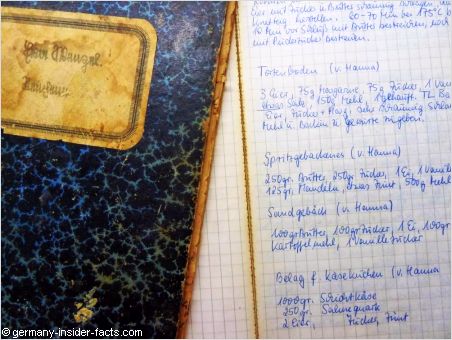 mit Zucker u. Butter schaumig
Knetteig herstellen. 60-70 Min bei 175°C
10 Min vor mit Butter bestreichen, noch
mit Puderzucker bestreuen.
Tortenboden (v. Hanna)
3 Eier, 75g Margarine, 75g Zucker, 1 Van
etwas Salz, 150g Mehl, 1 gehäuft. TL Ba
Eier Zucker + Marg. sehr schaumig
Mehl u. Backin zugeben.
Spritzgebackenes (v. Hanna)
250gr. Butter, 250gr Zucker, 1 Ei, 1 Vanille
125gr. Mandeln, etwas Zimt, 500g Mehl
Sandgebäck (v. Hanna)
100gr Butter, 100gr Zucker, 1 Ei, 100gr
Kartoffelmehl, 1 Vanillezucker
Belag f. Käsekuchen (v. Hanna
1000gr. Schichtkäse
250gr. Sahnequark
2 Eier, Zucker, Zimt
© germany-insider-facts.com